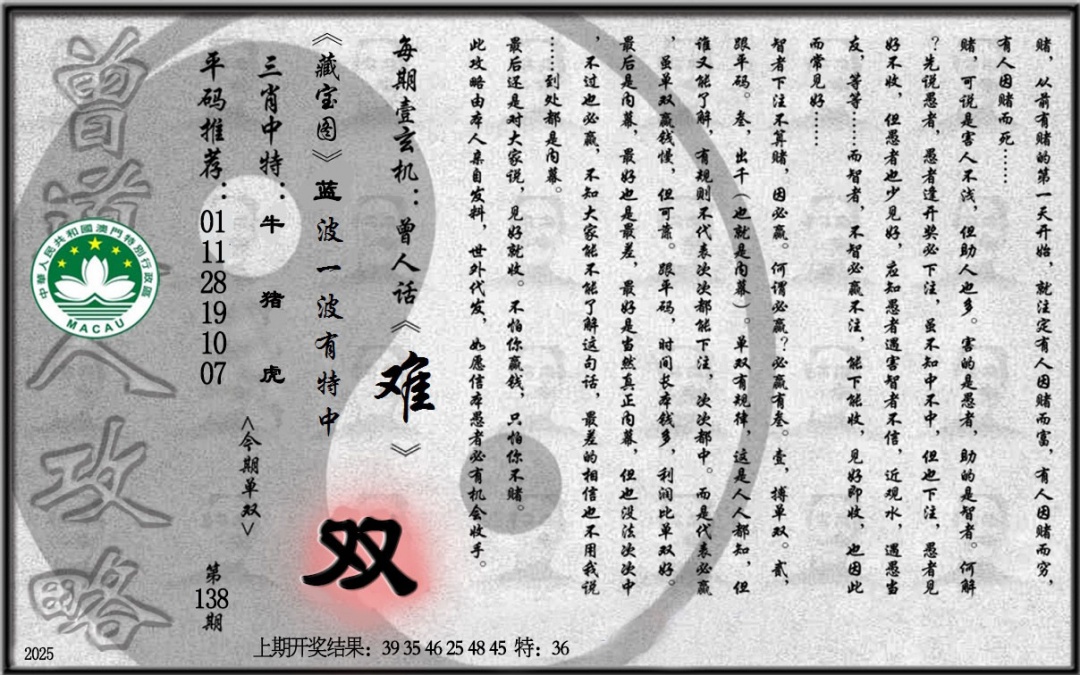 赌，从前有赌的第一天开始，就注定有人因赌而富，有人因赌而穷，
有人因赌而死……
赌，可说是害人不浅，但助人也多。害的是愚者，助的是智者。何解
？先说愚者，愚者逢开奖必下注，虽不知中不中，但也下注，愚者见
好不收，但愚者也少见好，应知愚者遇害智者不信，近观水，遇愚当
友，等等……而智者，不智必赢不注，能下能收，见好即收，也因此
而常见好……
智者下注不算赌，因必赢。何谓必赢？必赢有叁。壹，搏单双。贰，
跟平码。叁，出千（也就是内幕）。单双有规律，这是人人都知，但
谁又能了解，有规则不代表次次都能下注，次次都中。而是代表必赢
，虽单双赢钱慢，但可靠。跟平码，时间长本钱多，利润比单双好。
最后是内幕，最好也是最差，最好是当然真正内幕，但也没法次次中
，不过也必赢，不知大家能不能了解这句话，最差的相信也不用我说
……到处都是内幕。
最后还是对大家说，见好就收。不怕你赢钱，只怕你不赌。
此攻略由本人亲自发料，世外代发，如愿信本愚者必有机会收手。
每期壹玄机：曾人话《难》
《藏宝图》蓝波一波有特中
双
三肖中特：牛 猪 虎
<今期单双>
平码推荐：01 11 28 19 10 07
第138期
曾道人攻略
中華人民共和國澳門特別行政區
MACAU
2025
上期开奖结果：39 35 46 25 48 45 特：36